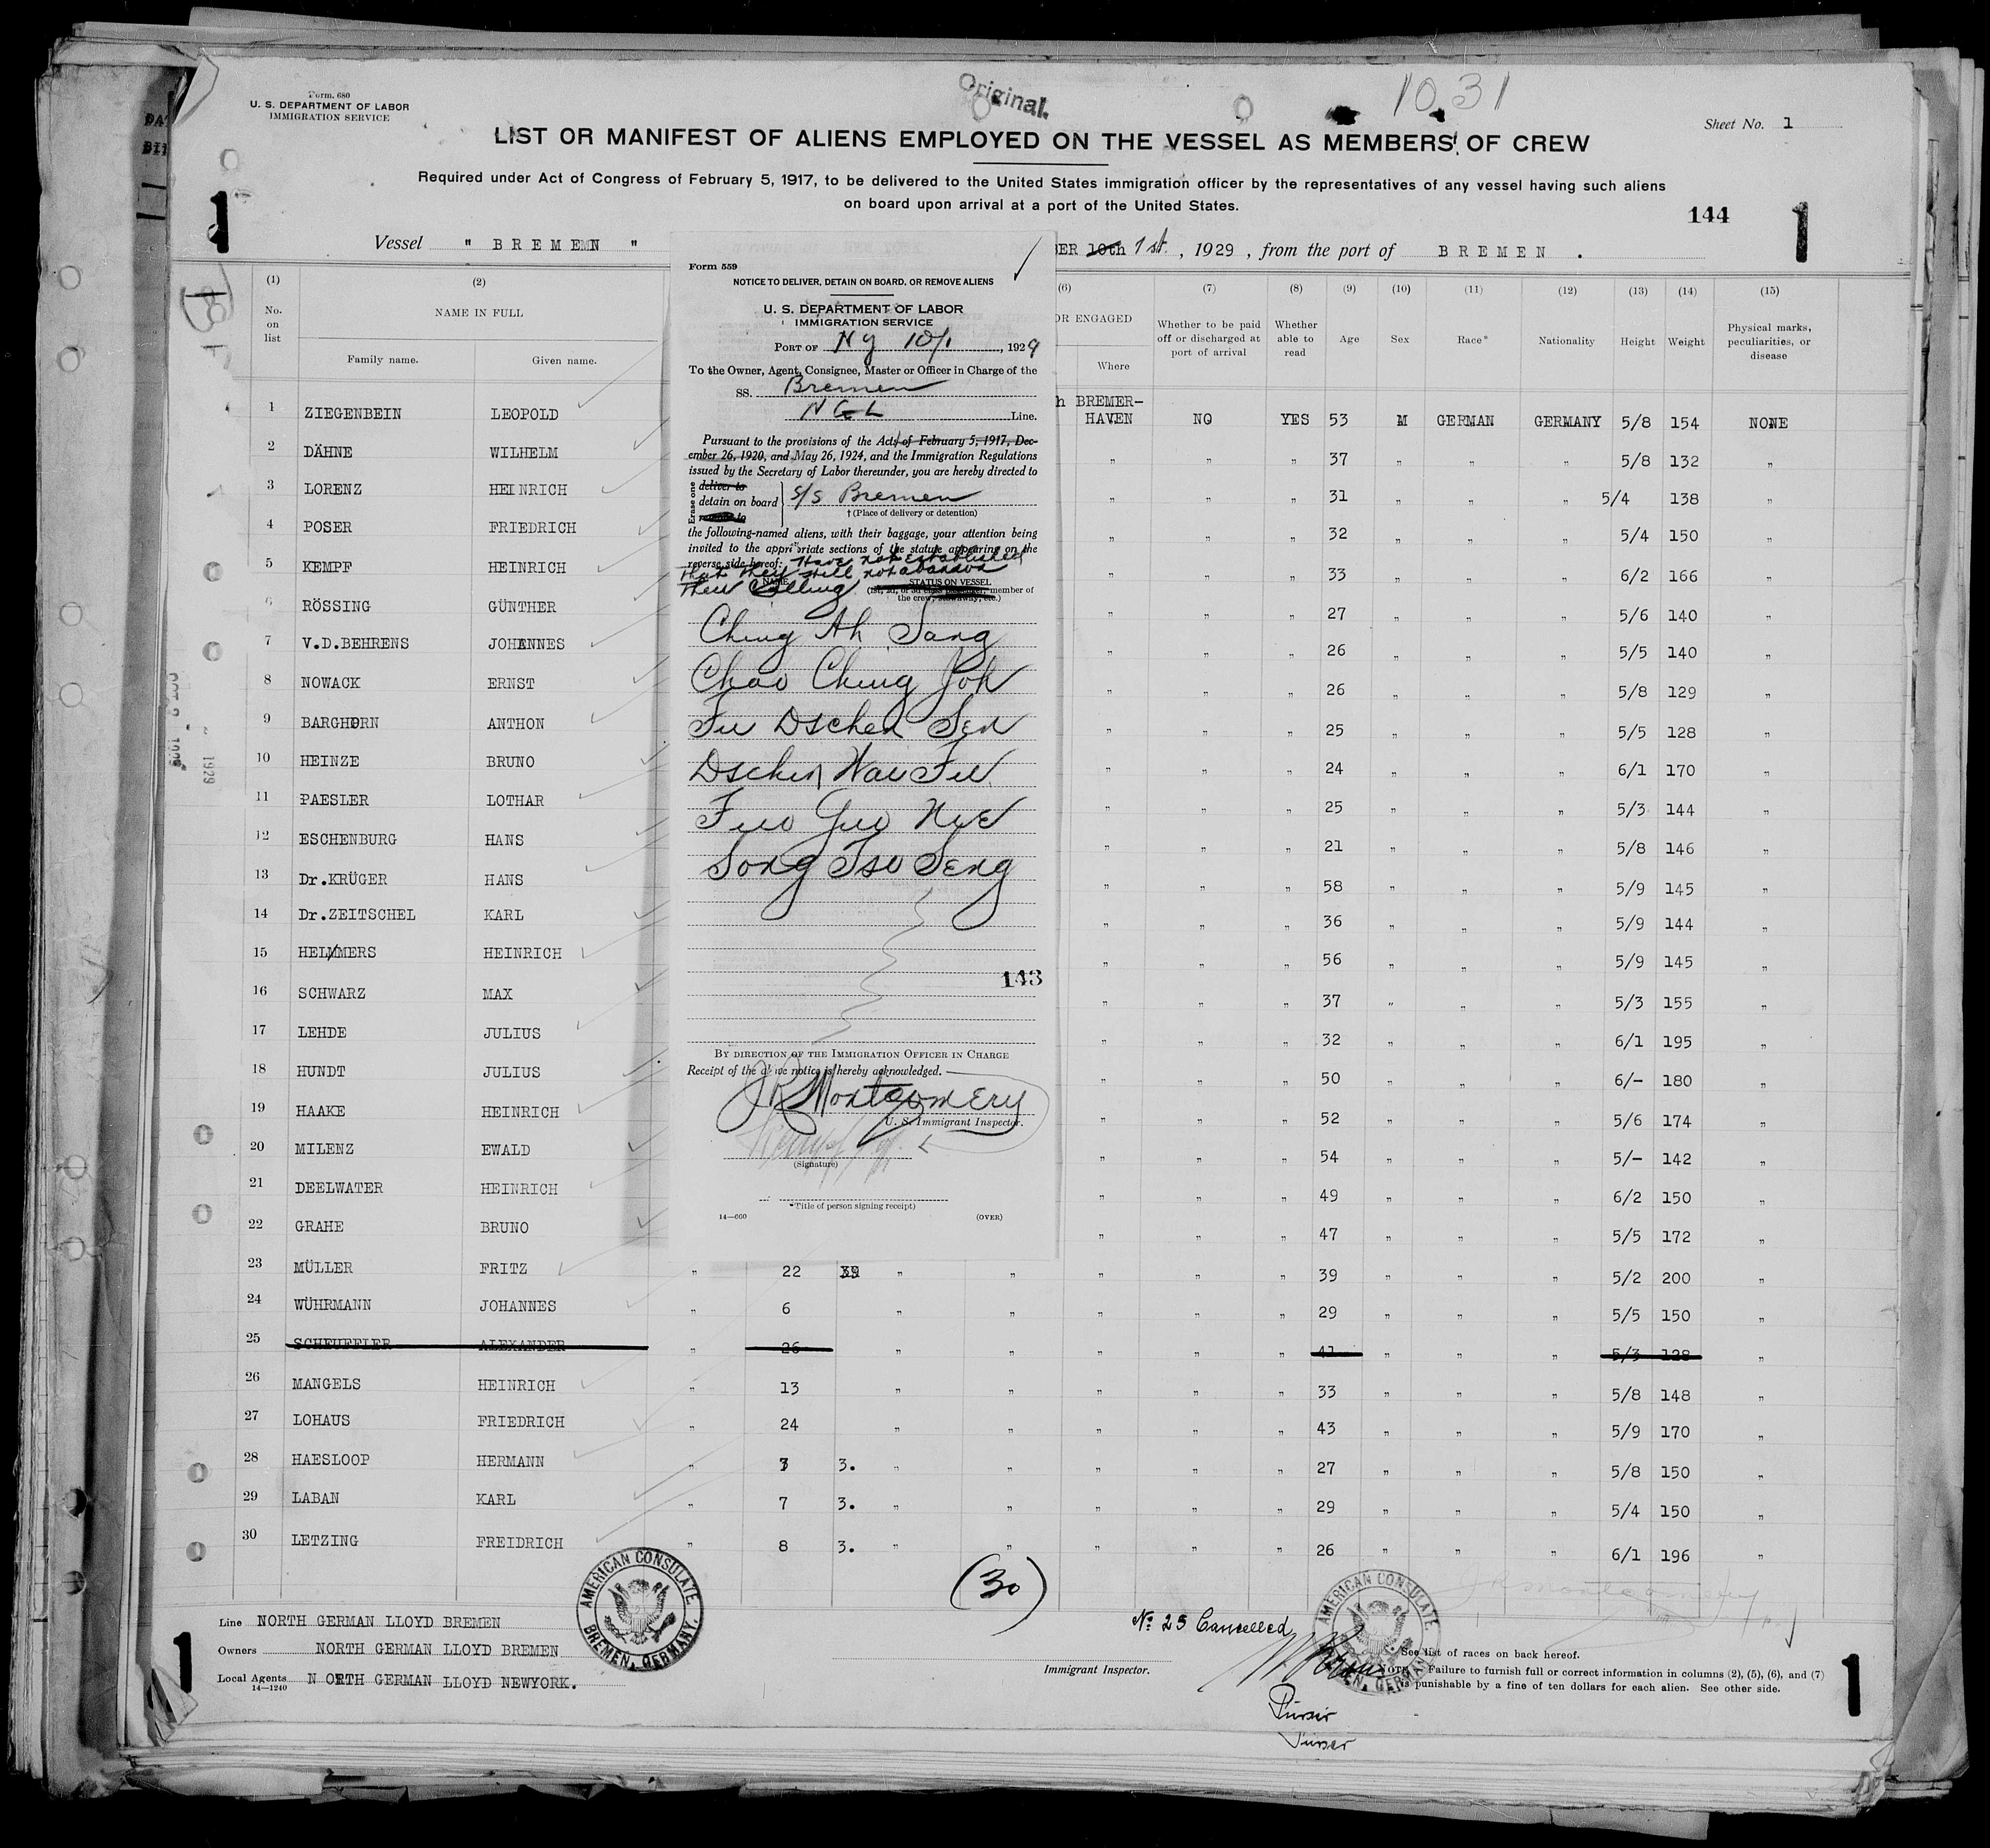 Form. 680
U. S. DEPARTMENT OF LABOR
IMMIGRATION SERVICE
Original.
1031
Sheet No. 1
LIST OR MANIFEST OF ALIENS EMPLOYED ON THE VESSEL AS MEMBERS OF CREW
Required under Act of Congress of February 5, 1917, to be delivered to the United States immigration officer by the representatives of any vessel having such aliens
on board upon arrival at a port of the United States.
144
1 1
Vessel " BREMEN "
BER 10th 1st. , 1929 , from the port of BREMEN .
(1) (2) (6) (7) (8) (9) (10) (11) (12) (13) (14) (15)
No. on list
NAME IN FULL
Family name. Given name.
OR ENGAGED
Where
Whether to be paid off or discharged at port of arrival
Whether able to read
Age Sex Race* Nationality Height Weight
Physical marks, peculiarities, or disease
1 ZIEGENBEIN LEOPOLD h BREMER-HAVEN NO YES 53 M GERMAN GERMANY 5/8 154 NONE
2 DÄHNE WILHELM " " " 37 " " " 5/8 132 "
3 LORENZ HEINRICH " " " 31 " " " 5/4 138 "
4 POSER FRIEDRICH " " " 32 " " " 5/4 150 "
5 KEMPF HEINRICH " " " 33 " " " 6/2 166 "
6 RÖSSING GÜNTHER " " " 27 " " " 5/6 140 "
7 V.D.BEHRENS JOHANNES " " " 26 " " " 5/5 140 "
8 NOWACK ERNST " " " 26 " " " 5/8 129 "
9 BARGHORN ANTHON " " " 25 " " " 5/5 128 "
10 HEINZE BRUNO " " " 24 " " " 6/1 170 "
11 PAESLER LOTHAR " " " 25 " " " 5/3 144 "
12 ESCHENBURG HANS " " " 21 " " " 5/8 146 "
13 Dr.KRÜGER HANS " " " 58 " " " 5/9 145 "
14 Dr.ZEITSCHEL KARL " " " 36 " " " 5/9 144 "
15 HELMMERS HEINRICH " " " 56 " " " 5/9 145 "
16 SCHWARZ MAX " " " 37 " " " 5/3 155 "
17 LEHDE JULIUS " " " 32 " " " 6/1 195 "
18 HUNDT JULIUS " " " 50 " " " 6/- 180 "
19 HAAKE HEINRICH " " " 52 " " " 5/6 174 "
20 MILENZ EWALD " " " 54 " " " 5/- 142 "
21 DEELWATER HEINRICH " " " 49 " " " 6/2 150 "
22 GRAHE BRUNO " " " 47 " " " 5/5 172 "
23 MÜLLER FRITZ " 22 " " " " " 39 " " " 5/2 200 "
24 WÜHRMANN JOHANNES " 6 " " " " " 29 " " " 5/5 150 "
25 SCHEUFFLER ALEXANDER " 26 " " " " " 41 " " " 5/3 128 "
26 MANGELS HEINRICH " 13 " " " " " 33 " " " 5/8 148 "
27 LOHAUS FRIEDRICH " 24 " " " " " 43 " " " 5/9 170 "
28 HAESLOOP HERMANN " 3 3. " " " " " 27 " " " 5/8 150 "
29 LABAN KARL " 7 3. " " " " " 29 " " " 5/4 150 "
30 LETZING FREIDRICH " 8 3. " " " " " 26 " " " 6/1 196 "
Form 559
NOTICE TO DELIVER, DETAIN ON BOARD, OR REMOVE ALIENS
U. S. DEPARTMENT OF LABOR
IMMIGRATION SERVICE
PORT OF N Y 10/1, 1929
To the Owner, Agent, Consignee, Master or Officer in Charge of the
SS. Bremen
N G L Line.
Pursuant to the provisions of the Acts of February 5, 1917, Dec-
ember 26, 1920, and May 26, 1924, and the Immigration Regulations
issued by the Secretary of Labor thereunder, you are hereby directed to
Erase one
deliver to
detain on board S/S Bremen
remove to
† (Place of delivery or detention)
the following-named aliens, with their baggage, your attention being
invited to the appropriate sections of the statute appearing on the
reverse side hereof: Have not established
that they will not abandon
their Calling
NAME STATUS ON VESSEL
(1st, 2d, or 3d class passenger, member of
the crew, stowaway, etc.)
Ching Ah Sang
Chao Ching Joh
Fu Dschen Sen
Dschen Wau Fu
Fuo Guo Nue
Song Tso Seng
143
BY DIRECTION OF THE IMMIGRATION OFFICER IN CHARGE
Receipt of the above notice is hereby acknowledged.
J R Montgomery
U. S. Immigrant Inspector.
(Signature)
*Title of person signing receipt)
14—660 (OVER)
(30)
AMERICAN CONSULATE
BREMEN, GERMANY.
AMERICAN CONSULATE
BREMEN, GERMANY
Line NORTH GERMAN LLOYD BREMEN
Owners NORTH GERMAN LLOYD BREMEN
Local Agents NORTH GERMAN LLOYD NEWYORK.
14—1240
No 25 Cancelled
Immigrant Inspector.
See list of races on back hereof.
NOTE Failure to furnish full or correct information in columns (2), (5), (6), and (7)
is punishable by a fine of ten dollars for each alien. See other side.
Purser
Purser
1 1